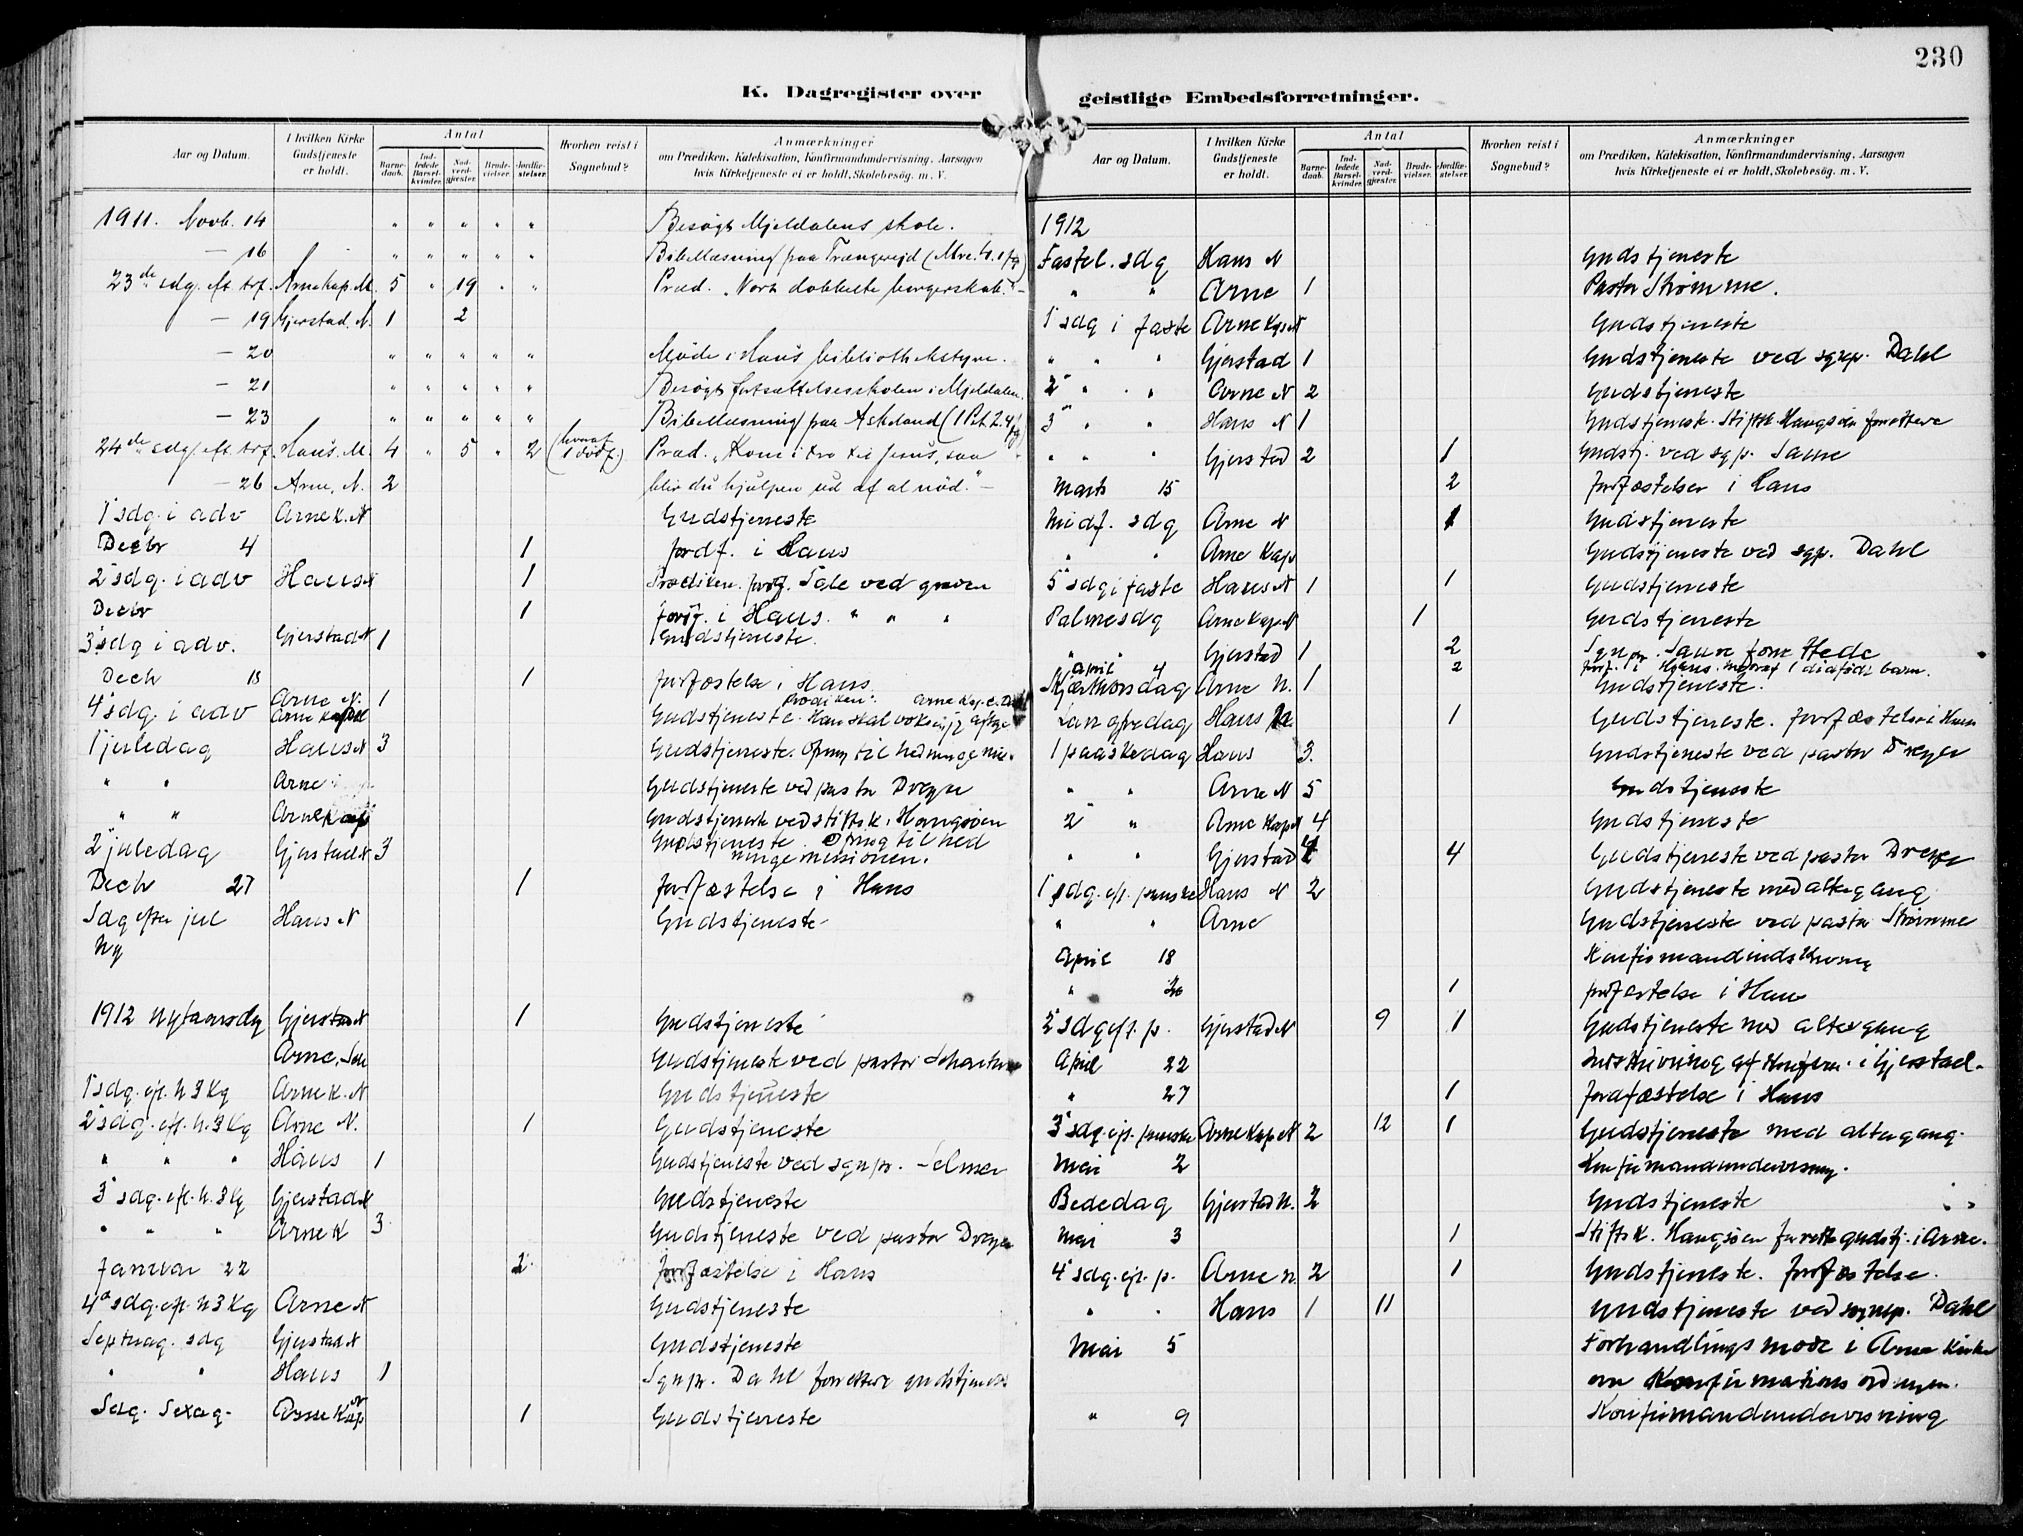 230
K. Dagregister over
geistlige Embedsforretninger.
Aar og Datum.
I hvilken Kirke Gudstjeneste er holdt.
Antal
Barnedaab.
Indledede Barselkvinder.
Nadverdgjester.
Brudevielser.
Jordfæstelser.
Hvorhen reist i Sognebud?
Anmærkninger
om Prædiken, Katekisation, Konfirmandundervisning, Aarsagen
hvis Kirketjeneste ei er holdt, Skolebesøg. m. V.
1911. Novb. 14 " " " " " Besøgt Mjeldalens skole.
— 16 " " " " " Bibellæsning paa Trængereid (Mrc. 4.1 fg)
23de sdg. eft. trf. Arne kap. M. 5 " 19 " " Præd. "Vort dobbelte borgerskab." —
— 19 Gjerstad. N. 1 2
— 20 " " " " " Møde i Haus bibliothekstyre.
— 21 " " " " " Besøgt fortsættelsesskolen i Mjeldalen.
— 23 " " " " " Bibellæsning paa Askeland (1 Pet. 2.4 fg)
24de sdg. eft. trf. Haus. M. 4 " 5 " 2 (hvoraf 1 dødf.) Præd. "Kom i tro til Jesus, saa
— 26 Arne. N. 2 blir du hjulpen ud af al nød." —
1 sdg. i adv Arne K. N Gudstjeneste
Decbr 4 1 Jordf. i Haus
2 sdg. i adv Haus N 1 Prædiken. Jordf. Tale ved graven
Decbr 1 Jordf. i Haus. " " "
3 sdg i adv. Gjerstad N 1 Gudstjeneste.
Decb 18 1 Jordfæstelse i Haus
4 sdg. i adv Arne N. 1
Arne Kapel
Gudstjeneste. Prædiken: Han skal vokse, jeg aftage
1 juledag Haus N 3 Gudstjeneste. Ofring til hedningemis.
" " Arne Gudstjeneste ved pastor Dreyer
" " Arne Kap Gudstjeneste ved stiftsk. Haugsøen
2 juledag Gjerstad N 3 Gudstjeneste. Ofring til hed
ningemissionen.
Decb 27 1 Jordfæstelse i Haus
Sdg efter jul Haus N Gudstjeneste
Ny
1912 Nytaarsdg Gjerstad N 1 Gudstjeneste
Arne, Gudstjeneste ved pastor
1 sdg. ef. H 3 Kg Arne K. N Gudstjeneste
2 sdg. ef. H. 3 Kg Arne N. 1 Gudstjeneste
" " " Haus 1 Gudstjeneste ved sgnpr. Selmer
3 sdg. ef. H. 3 Kg Gjerstad N Gudstjeneste
" " " Arne K 3 Gudstjeneste ved pastor Dreyer
Januar 22 2 Jordfæstelse i Haus
4 sdg. ef. H 3 Kg Arne N Gudstjeneste
Septuag. sdg Gjerstad N Gudstjeneste
" " Haus 1 Sgnpr. Dahl forrettere gudstjeneste
Sdg. Sexag. Arne Kap N 1 Gudstjeneste
Aar og Datum.
I hvilken Kirke Gudstjeneste er holdt.
Antal
Barnedaab.
Indledede Barselkvinder.
Nadverdgjester.
Brudevielser.
Jordfæstelser.
Hvorhen reist i Sognebud?
Anmærkninger
om Prædiken, Katekisation, Konfirmandundervisning, Aarsagen
hvis Kirketjeneste ei er holdt, Skolebesøg. m. V.
1912
Fastel. sdg Haus N Gudstjeneste
" " Arne 1 Pastor Strømme.
1 sdg i faste Arne Kap N Gudstjeneste
" " " Gjerstad 1 Gudstjeneste ved sgnp. Dahl
2 " " " Arne N 2 Gudstjeneste
3 " " Haus N 1 Gudstjenest. Stiftsk. Haugsøen forrettere
" " " Gjerstad 2 1 Gudstj. ved sgp. Saure
Marts 15 2 Jordfæstelser i Haus
Midf. sdg Arne N 1 Gudstjeneste
" " Arne Kap Gudstjeneste ved sgp. Dahl
5 sdg i faste Haus N 1 1 Gudstjeneste
Palmesdg Arne Kap N 1 Gudstjeneste
" " Gjerstad 1 2 Sgnpr. Saure forrettede
April 4 2 Jordf. i Haus. hvoraf 1 dødfødt barn.
Skjærthorsdag Arne N. 1 Gudstjeneste.
Langfredag Haus N 1 Gudstjeneste. Jordfæstelse i Haus
1 paaskedag Haus 3. Gudstjeneste ved pastor Dreyer
" " Arne N 5 Gudstjeneste
2 " Arne Kap N 4 Gudstjeneste
" " Gjerstad 4 4 Gudstjeneste ved pastor Dreyer
1 sdg. ef. paaske Haus N 2 Gudstjeneste med altergang
" " Arne Gudstjeneste ved pastor Strømme
April 18 Konfirmandindskrivning
" 20 1 Jordfæstelse i Haus
2 sdg ef. p. Gjerstad N 9 1 Gudstjeneste med altergang
April 22 Indskrivning af Konfirm. i Gjerstad.
" 27 1 Jordfæstelse i Haus
3 sdg. ef. paaske Arne Kap N 2 12 1 Gudstjeneste med altergang.
Mai 2 Konfirmandundervisning.
Bededag Gjerstad N. 2 Gudstjeneste
Mai 3 1 Stiftsk. Haugsøen forrettet gudstj. i Arne.
4 sdg. ef. p. Arne N. 2 1 Gudstjeneste. Jordfæstelse.
" " Haus 1 11 Gudstjeneste ved sognep. Dahl
Mai 5 Forhandlingsmøde i Arne Kirke
om Konfirmationsordningen.
" 9 Konfirmandundervisning